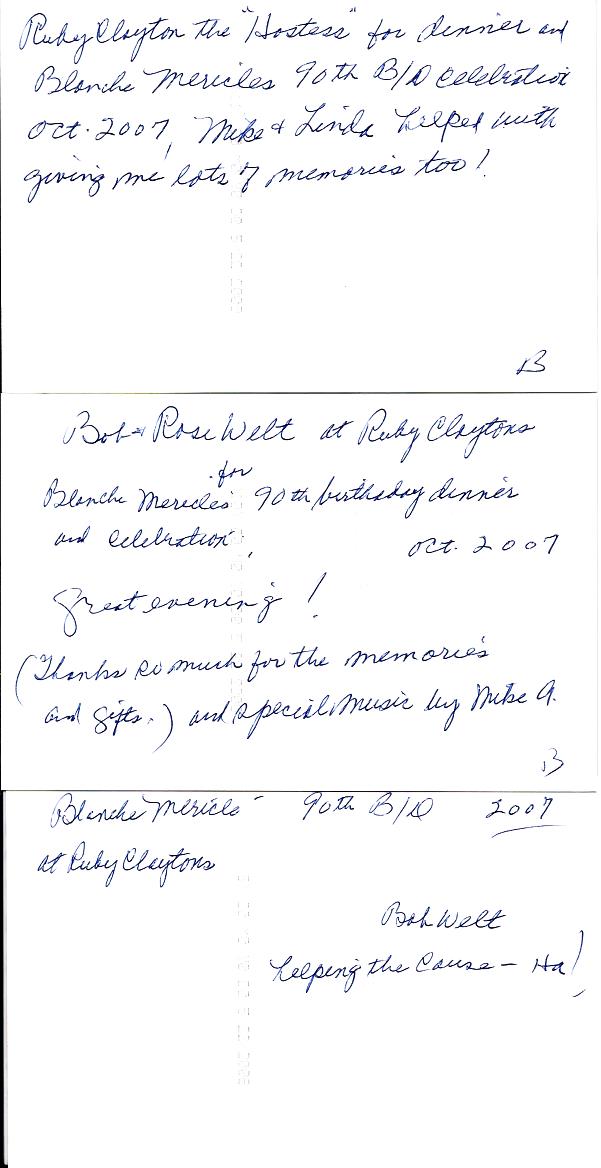 Ruby Clayton the "Hostess" for dinner and
Blanche Mericles 90th B/D celebration
Oct. 2007, Mike & Linda helped with
giving me lots of memories too!
B
Bob & Rose Welt at Ruby Claytons
for
Blanche Mericles' 90th birthday dinner
and celebration.
Oct. 2007
Great evening!
(Thanks so much for the memories
and gifts.) and special music by Mike A.
B
Blanche Mericle 90th B/D 2007
at Ruby Claytons
Bob Welt
helping the Cause – Ha!